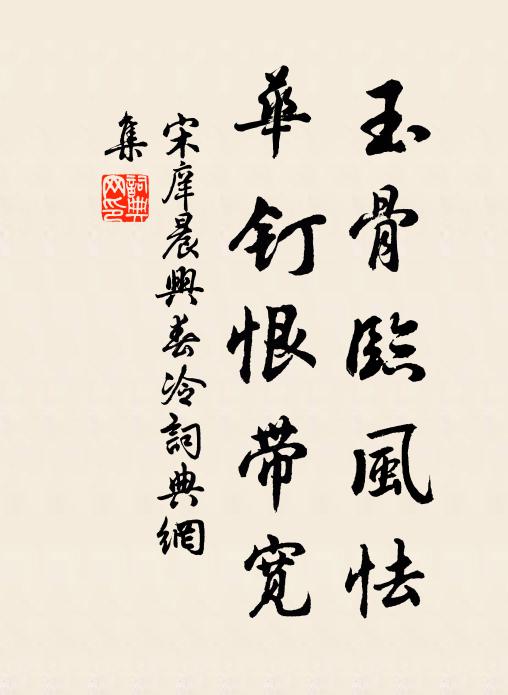 玉骨臨風怯
華釘恨带寬
宋庠晨興春冷詞典網
集
詞典網印